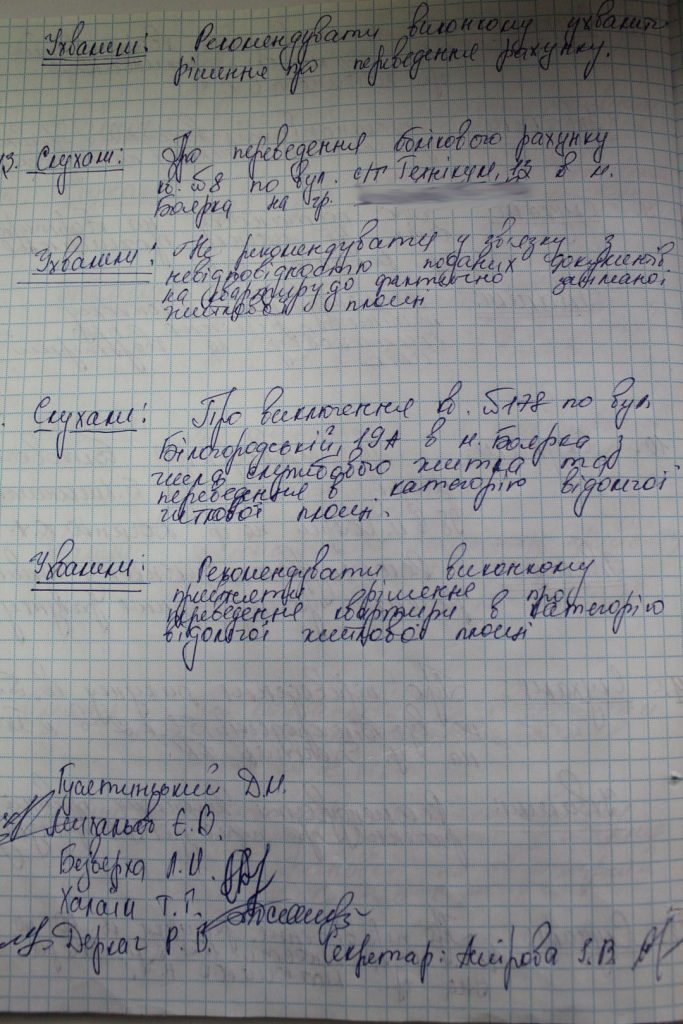 Ухвалили: Рекомендувати виконкому ухвалити
рішення про переведення рахунку.
3. Слухали: Про переведення особового рахунку
кв. №8 по вул. с/т Технікум, 12 в м.
Боярка на гр.
Ухвалили: Не рекомендувати у зв'язку з
невідповідністю поданих документів
на квартиру до фактично займаної
житлової площі
Слухали: Про виключення кв. №178 по вул
Білогородській, 19А в м. Боярка з
числа службового житла та
переведення в категорію відомчої
житлової площі.
Ухвалили: Рекомендувати виконкому
прийняти рішення про
переведення квартири в категорію
відомчої житлової площі
Д.М.
Є.В.
Безверха Л.И.
Т.Г.
Деркач Р. В. Секретар: Амірова І.В